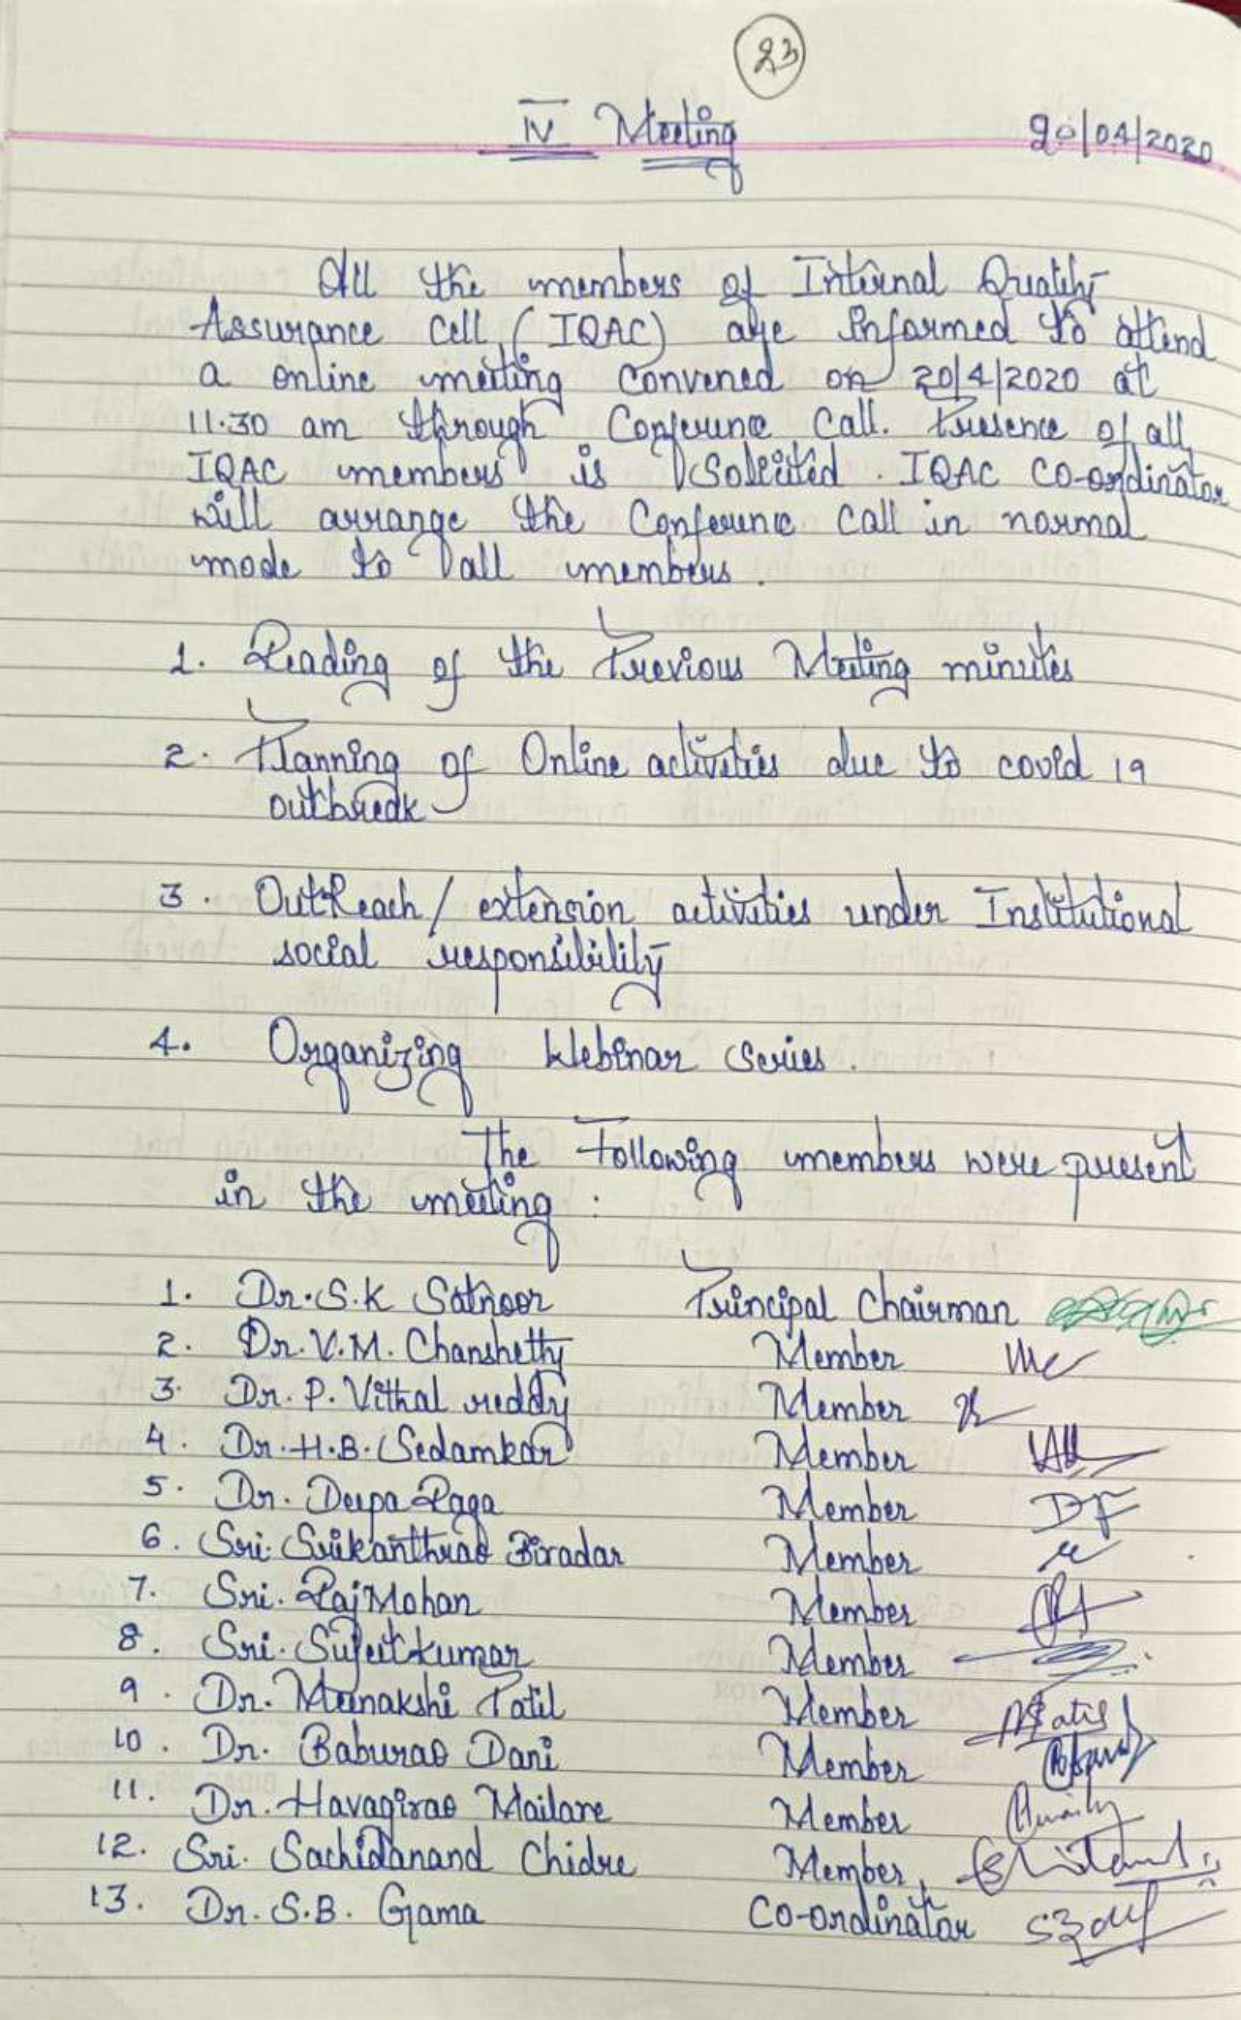 23
IV Meeting 20/04/2020
All the members of Internal Quality
Assurance Cell (IQAC) are informed to attend
a online meeting convened on 20/4/2020 at
11.30 am through Conference Call. Presence of all
IQAC members is Solicited. IQAC Co-ordinator
will arrange the Conference Call in normal
mode to all members.
1. Reading of the Previous Meeting minutes
2. Planning of Online activities due to covid 19
outbreak
3. OutReach / extension activities under Institutional
social responsibility
4. Organizing Webinar Series.
The Following members were present
in the meeting :
1. Dr. S.K Satnoor Principal Chairman
2. Dr. V.M. Chanshetty Member
3. Dr. P. Vithal reddy Member
4. Dr. H.B. Sedamkar Member
5. Dr. Deepa Raga Member
6. Sri. Srikanthrao Biradar Member
7. Sri. RajMohan Member
8. Sri. Sujeetkumar Member
9. Dr. Meenakshi Patil Member Patil
10. Dr. Baburao Dani Member
11. Dr. Havagirao Mailare Member
12. Sri. Sachidanand Chidre Member
13. Dr. S.B. Gama Co-ordinator